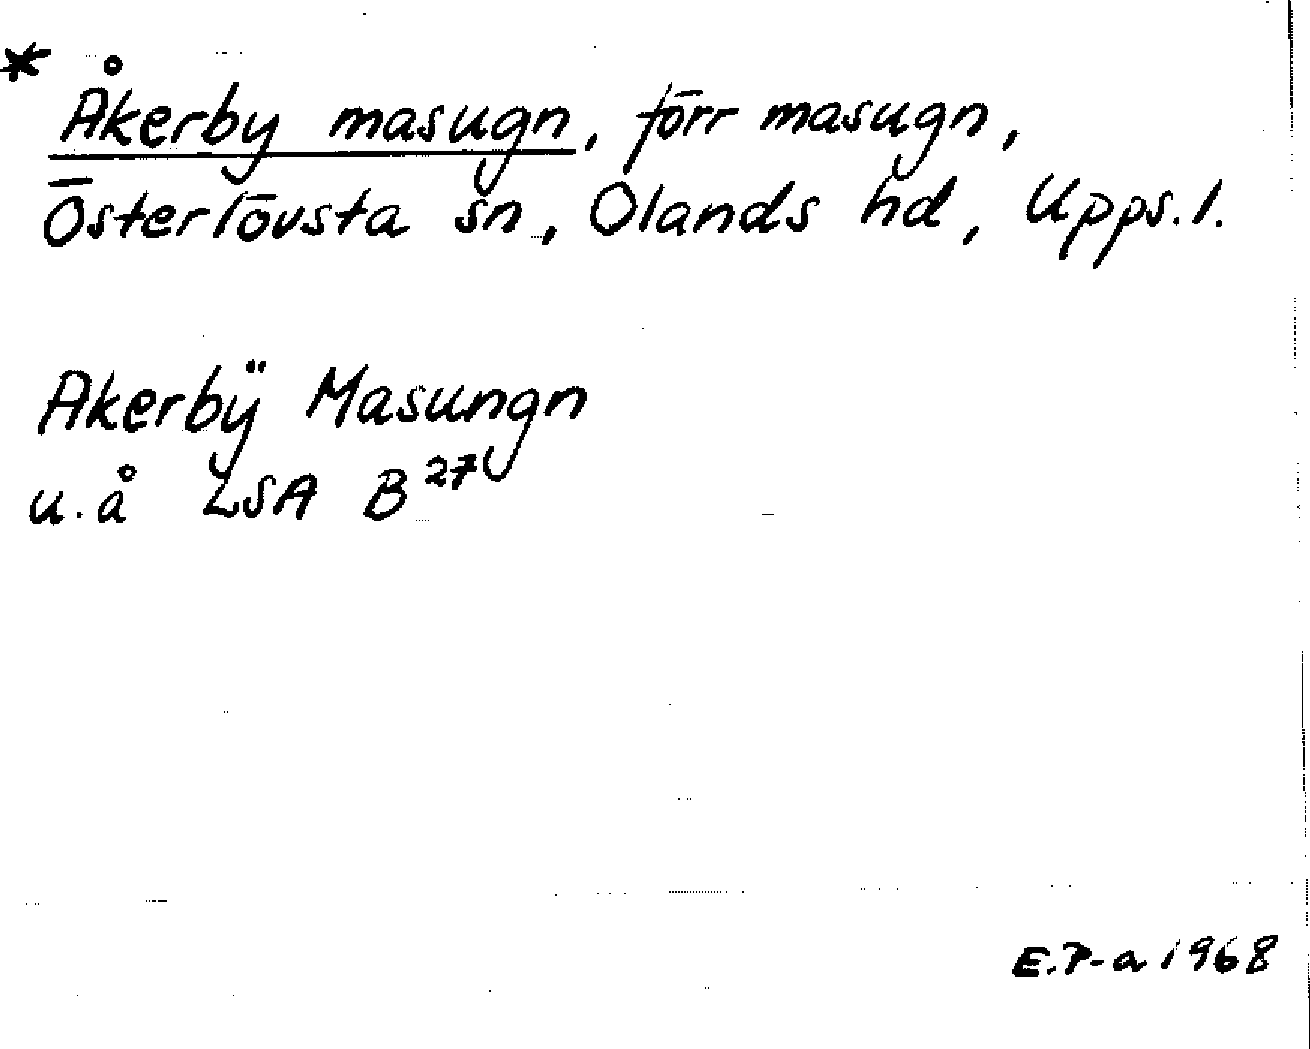 * Åkerby masugn, förr masugn,
Österlövsta sn, Olands hd, Upps. l.
Akerbÿ Masungn
u.å LSA B 27
E.P-a 1968